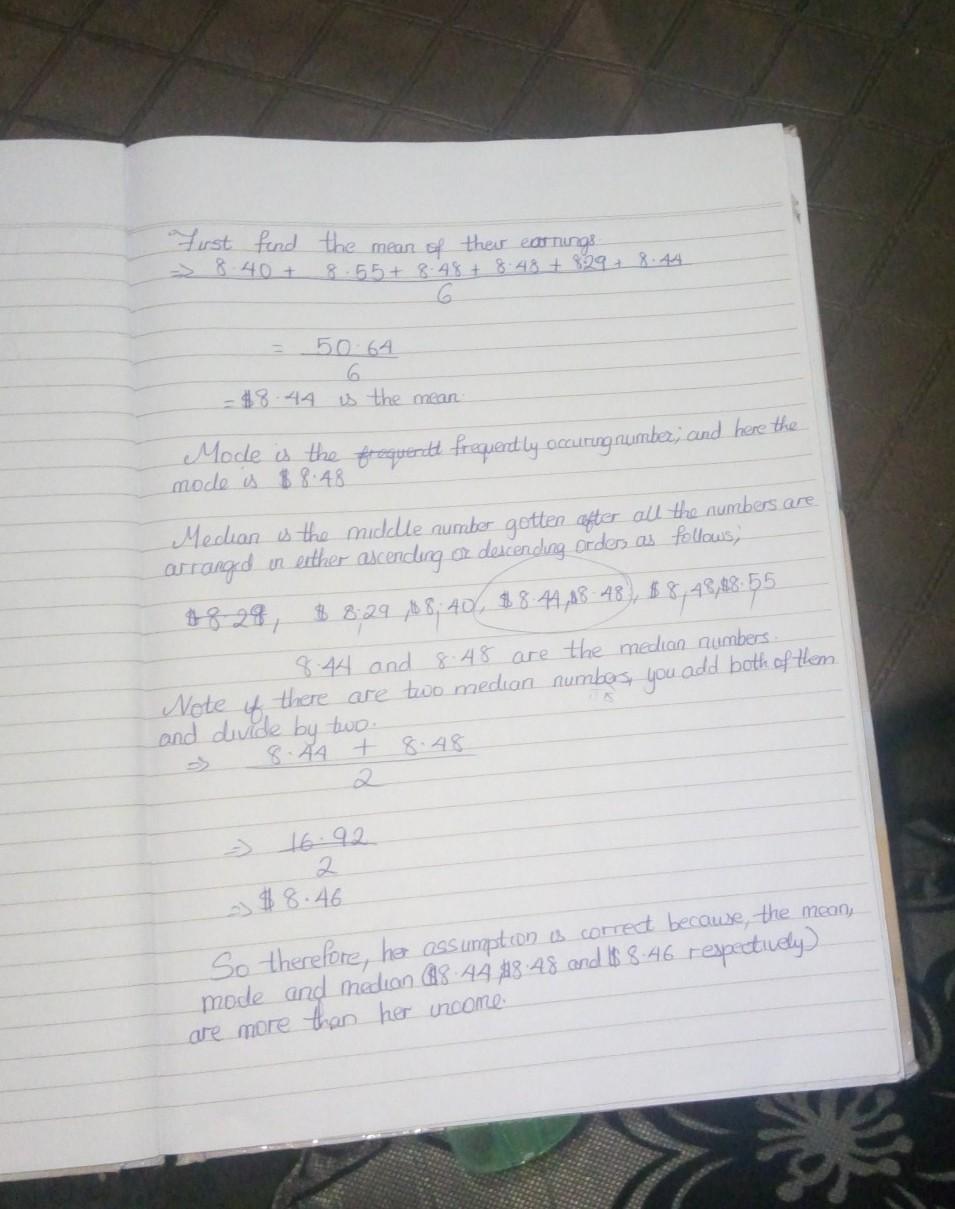 First find the mean of their earnings.
⇒ 8.40 + 8.55 + 8.48 + 8.48 + 8.29 + 8.44
6
= 50.64
6
= $8.44 is the mean.
Mode is the frequentt frequently occuring number; and here the
mode is $8.48
Median is the middle number gotten after all the numbers are
arranged in either ascending or descending order, as follows;
$8.29, $8.29, $8.40, $8.44, $8.48, $8,48, $8.55
8.44 and 8.48 are the median numbers.
Note if there are two median numbers, you add both of them
and divide by two.
⇒ 8.44 + 8.48
2
⇒ 16.92
2
⇒ $8.46
So therefore, her assumption is correct because, the mean,
mode and median ($8.44, $8.48 and $8.46 respectively)
are more than her income.